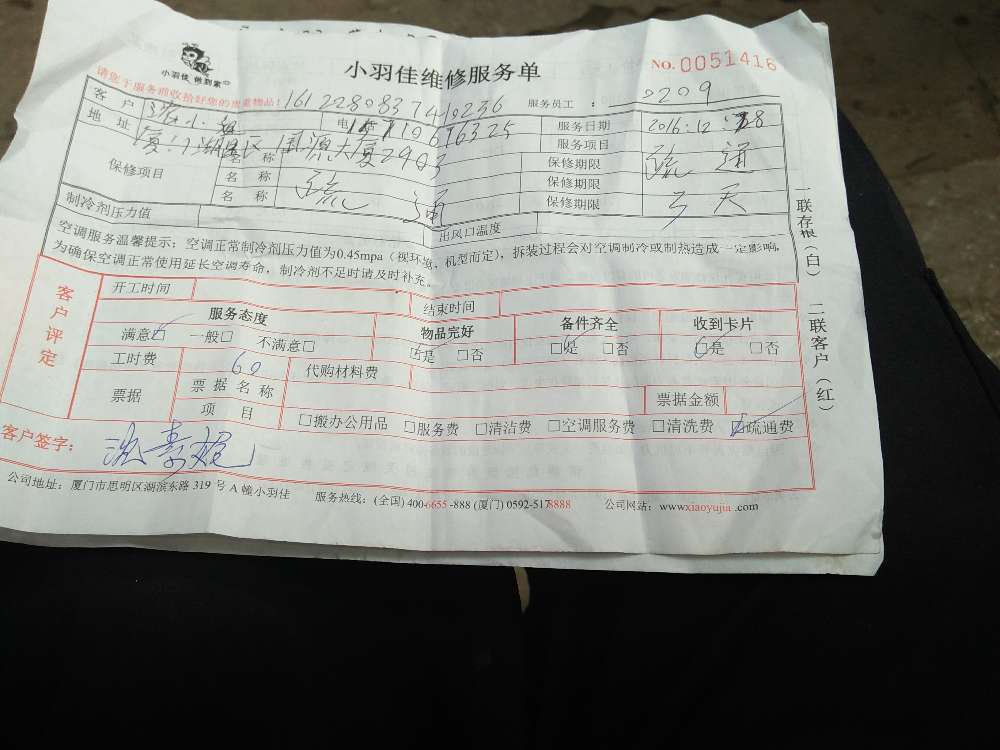 小羽佳 做到家
小羽佳维修服务单
NO.0051416
请您于服务前收拾好您的贵重物品!
161228083740236
服务员工 : 0209
客 户
小姐
电
服务日期
2016.12.28
地 址
国源大厦2903
服务项目
疏 通
保修项目
名 称
保修期限
名 称
疏 通
保修期限
名 称
保修期限
天
制冷剂压力值
出风口温度
空调服务温馨提示:空调正常制冷剂压力值为0.45mpa(视环境、机型而定),拆装过程会对空调制冷或制热造成一定影响,
为确保空调正常使用延长空调寿命,制冷剂不足时请及时补充。
客户评定
开工时间
结束时间
服务态度
物品完好
备件齐全
收到卡片
满意□ 一般□ 不满意□
□是 □否
□是 □否
□是 □否
工时费
60
代购材料费
票据
票据名称
票据金额
项 目
□搬办公用品 □服务费 □清洁费 □空调服务费 □清洗费 □疏通费
客户签字:
公司地址:厦门市思明区湖滨东路 319 号 A 幢小羽佳
服务热线:(全国) 400-6655-888 (厦门) 0592-5178888
公司网站:www.xiaoyujia.com
一联存根(白) 二联客户(红)